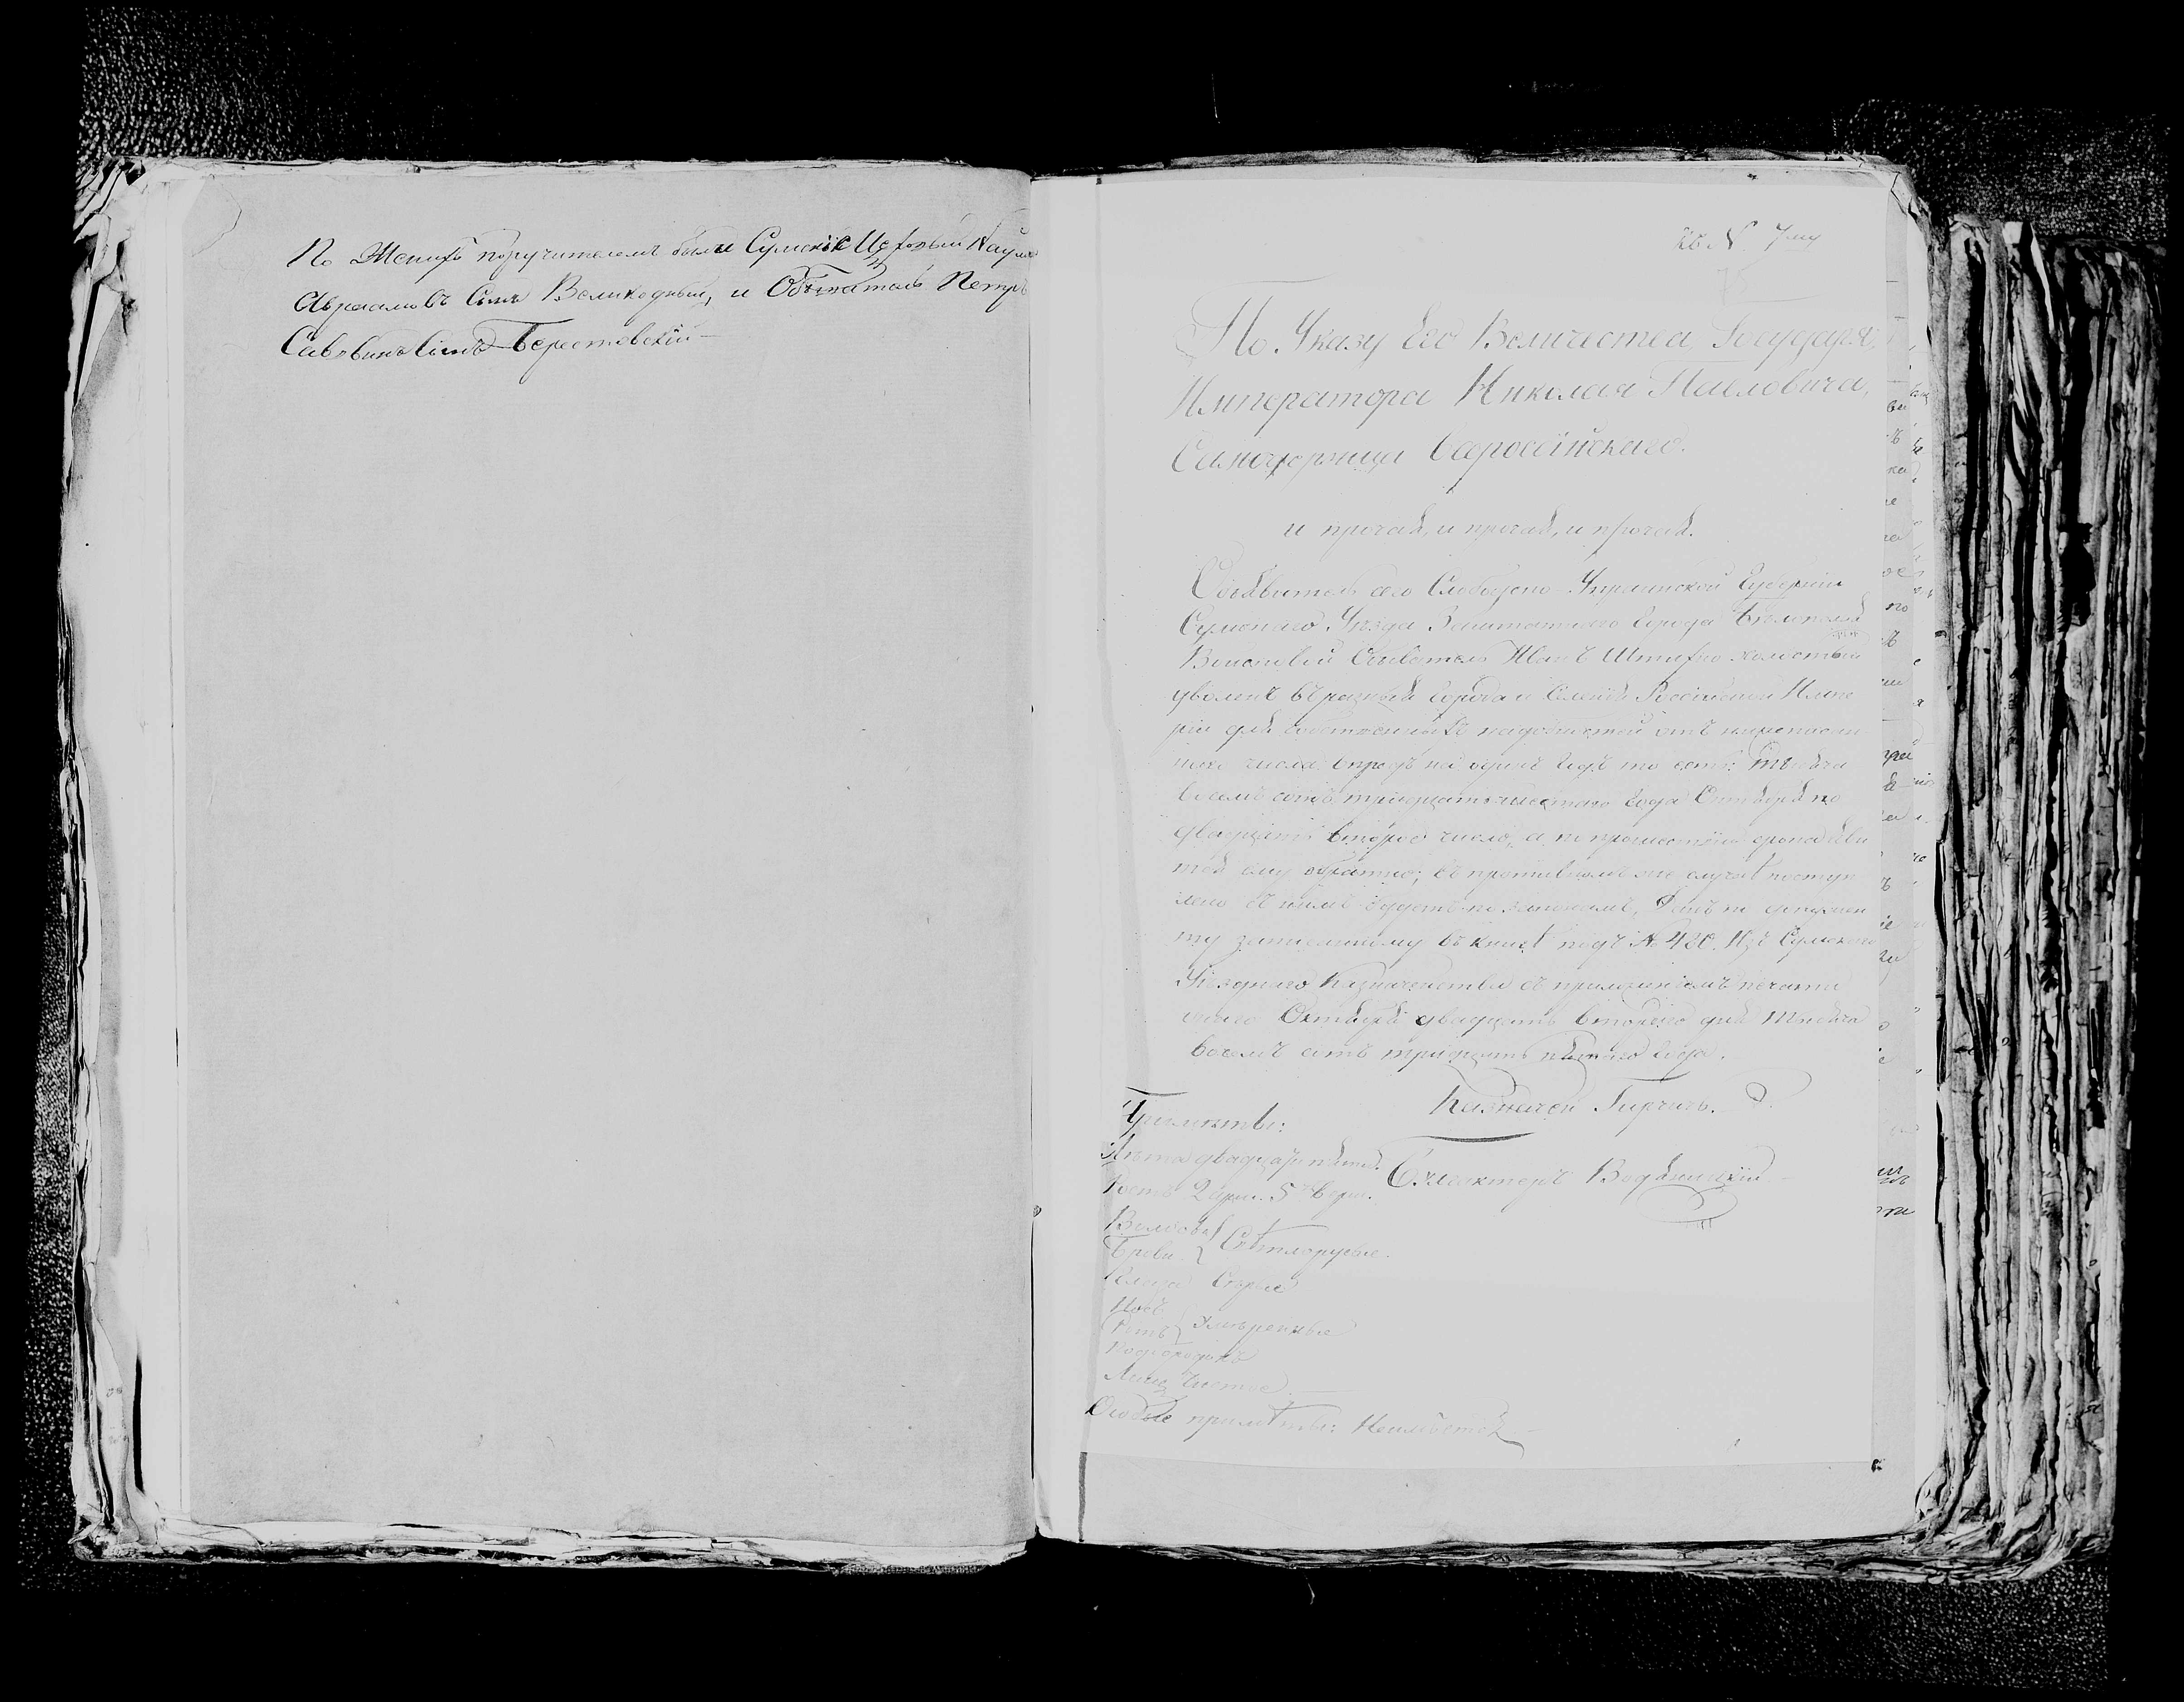 По Женихѣ поручителемъ были Сумскіе Цеховый Наумъ
Авраамовъ Сынъ Великодный, и Обыватель Петръ
Саввинъ Сынъ Берестовскій
къ № 7му
По Указу Его Величества Государя
Императора Николая Павловича,
Самодержца Всероссійскаго.
и прочая, и прочая, и прочая.
Объявитель сего Слободско Украинской Губерніи
Сумскаго Уѣзда Заштатнаго города Бѣлополья
Войсковой Обыватель Иванъ холостый
уволенъ въ разные города и Селенія Россійской Импе
ріи для собственныхъ надобностей отъ нижеписан
наго числа впредь на одинъ годъ то есть: тысяча
восемъ сотъ тридцать шестаго года Октября по
двадцать второе число, а по прошествіи срока яви
тся ему обратно; въ противномъ же случаѣ поступ
лено съ нимъ будетъ по законамъ, Данъ по докумен
ту записанному въ книгѣ подъ № 420. Изъ Сумскаго
Уѣзднаго Казначейства съ приложеніемъ печати
Октября двадцать втораго дня Тысяча
восемъ сотъ тридцать пятаго года.
Казначей
Примѣты:
Лѣта двадцать пять.
Ростъ 2 арш. 5 верш.
Бухгалтеръ
Волосы
Брови Свѣтлорусые.
Глаза Сѣрые
Носъ
Ротъ Умѣренные
Подбородокъ
Лице Чистое
Особые примѣты: Неимѣется